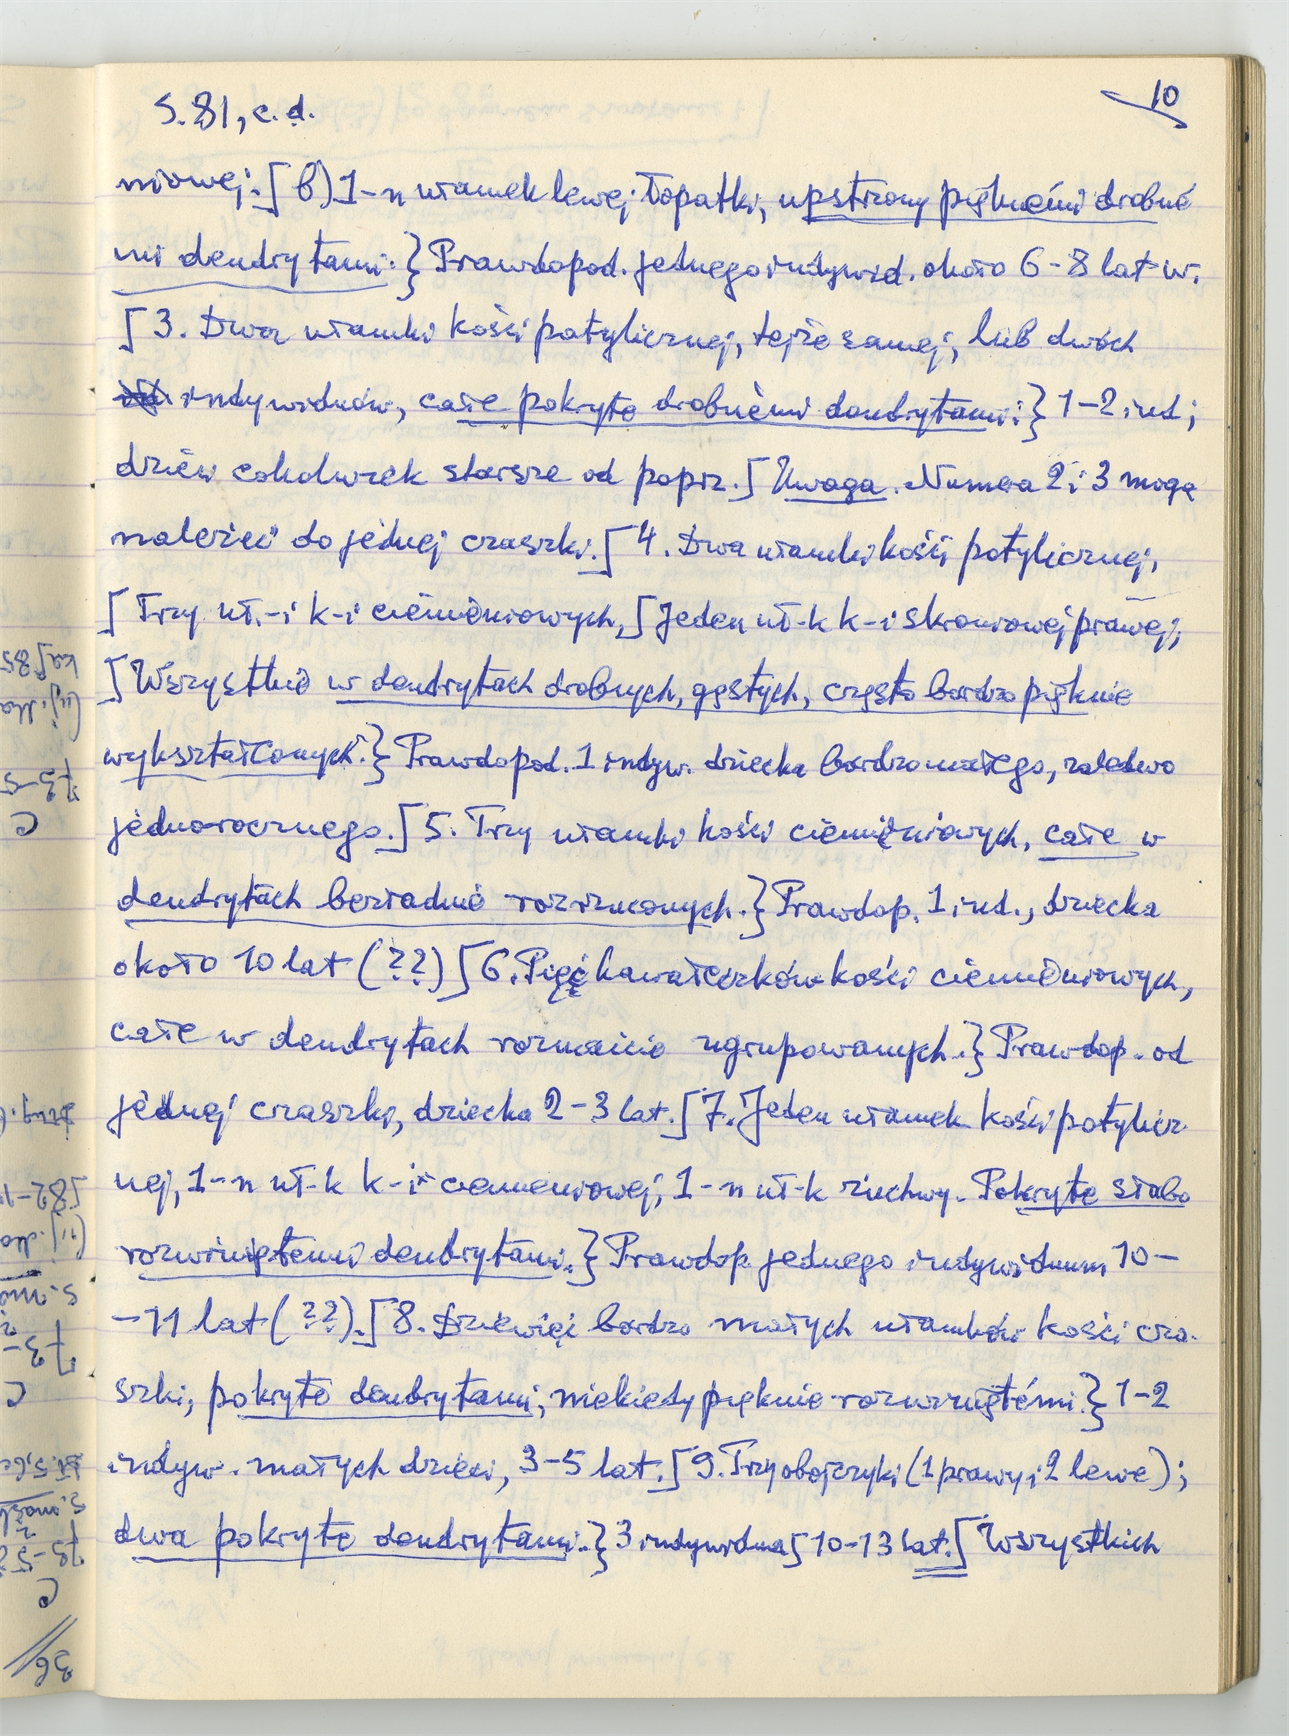 10
S. 81, c. d.
niowej. [ b) 1-n ułamek lewej łopatki, upstrzony pięknémi drobné
mi dendrytami. } Prawdopod. jednego indywid. około 6-8 lat w.
[ 3. Dwa ułamki kości potylicznej, tejże samej, lub dwóch
indywiduów, całe pokryte drobnémi dendrytami. } 1-2 ind;
dzieci cokolwiek starsze od poprz. [ Uwaga. Numera 2 i 3 mogą
należeć do jednej czaszki. [ 4. Dwa ułamki kości potylicznej,
[ Trzy uł.-i k-i ciemieniowych, [ Jeden uł-k k-i skroniowej prawej,
[ Wszystkie w dendrytach drobnych, gęstych, często bardzo pięknie
wykształconych. } Prawdopod. 1 indyw. dziecka bardzo małego, zaledwo
jednorocznego. [ 5. Trzy ułamki kości ciemieniowych, całe w
dendrytach bezładnie rozrzuconych. } Prawdop. 1 ind., dziecka
około 10 lat (??) [ 6. Pięć kawałeczków kości ciemieniowych,
całe w dendrytach rozmaicie ugrupowanych. } Prawdop. od
jednej czaszki, dziecka 2-3 lat. [ 7. Jeden ułamek kości potylicz
nej, 1-n uł-k k-i ciemieniowej, 1-n uł-k żuchwy. Pokryte słabo
rozwiniętemi dendrytami. } Prawdop. jednego indywiduum 10-
-11 lat (??). [ 8. Dziewięć bardzo małych ułamków kości cza-
szki, pokryte dendrytami, niekiedy pięknie rozwiniętémi. } 1-2
indyw. małych dzieci, 3-5 lat. [ 9. Trzy obojczyki (1 prawy i 2 lewe);
dwa pokryte dendrytami. } 3 indywidua [ 10-13 lat. [ Wszystkich